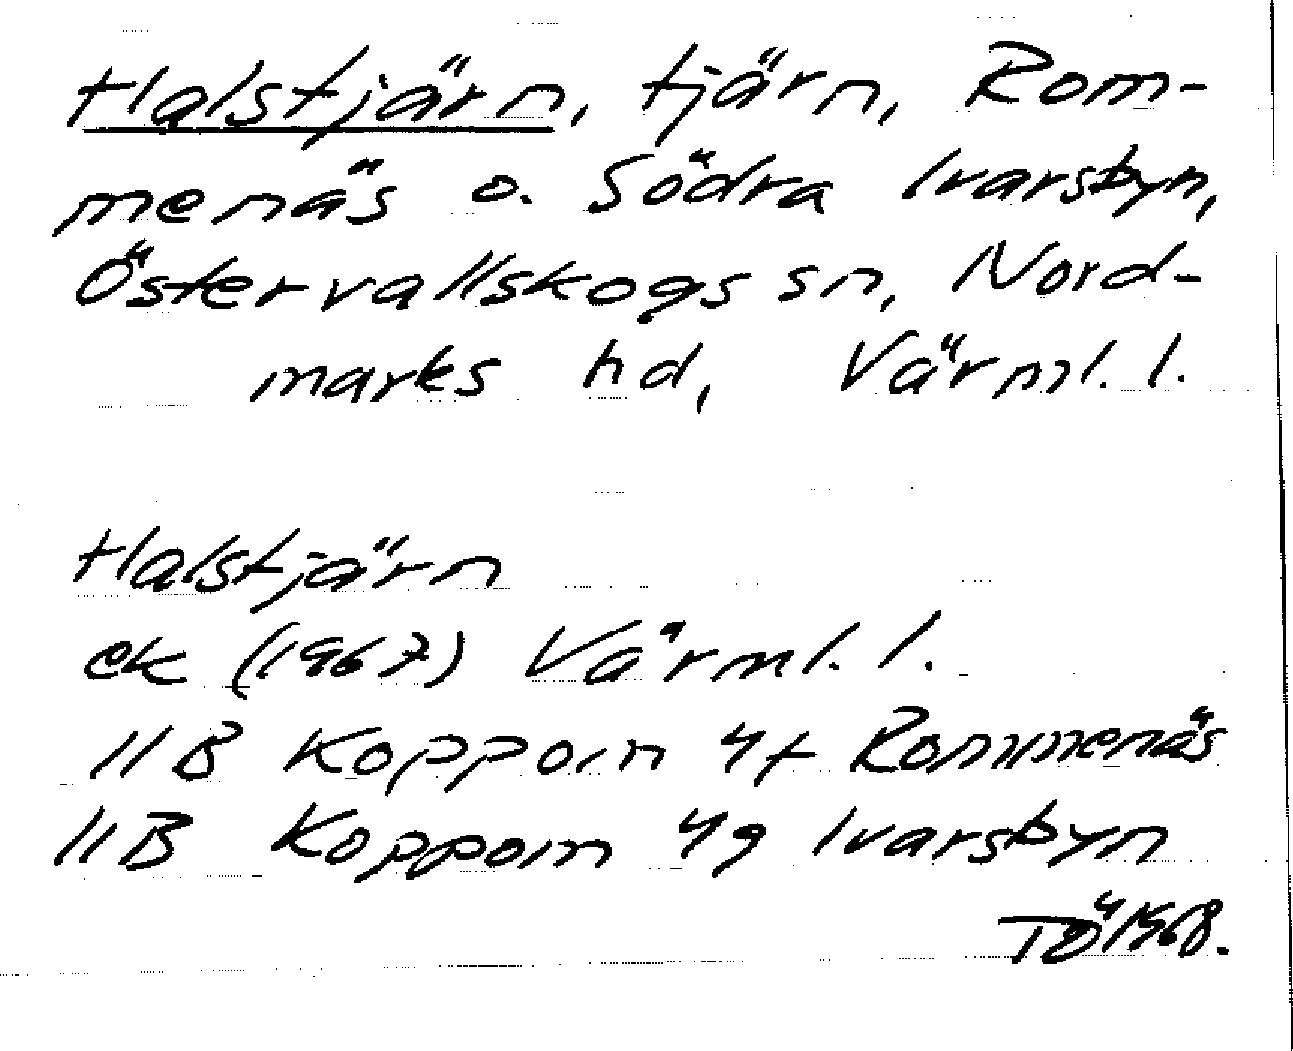 Halstjärn, tjärn, Rom-
menäs o. Södra Ivarsbyn,
Östervallskogs sn, Nord-
marks hd, Värml. l.
Halstjärn
ek (1967) Värml. l.
11B Koppom 4f Rommenäs
11B Koppom 4g Ivarsbyn
TÖ 1968.